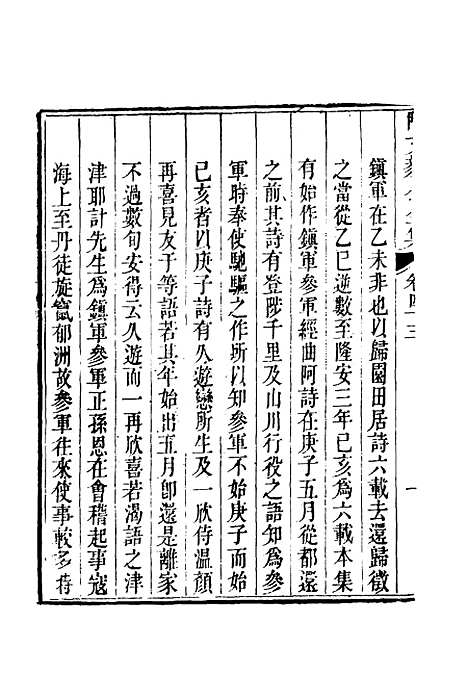 陶文毅公全集
卷四十三
一
鎮軍在乙未非也以歸園田居詩六載去還歸徵
之當從乙巳逆數至隆安三年己亥爲六載本集
有始作鎮軍參軍經曲阿詩在庚子五月從都還
之前其詩有登陟千里及山川行役之語知爲參
軍時奉使馳驅之作所以知參軍不始庚子而始
己亥者以庚子詩有久遊戀所生及一欣侍溫顏
再喜見友于等語若其年始出五月卽還是離家
不過數旬安得云久遊而一再欣喜若渴語之津
津耶計先生爲鎮軍參軍正孫恩在會稽起事寇
海上至丹徒旋竄郁洲故參軍往來使事較多時